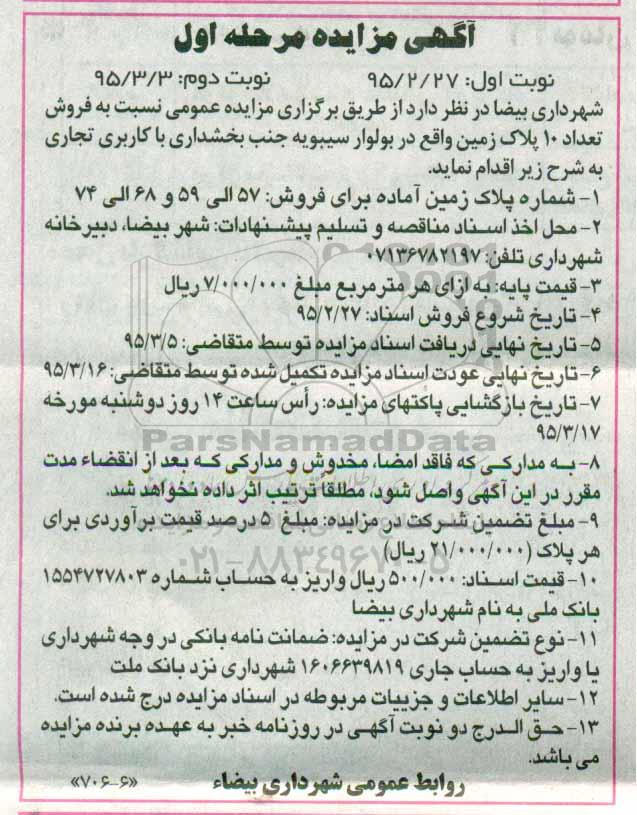 آگهی مزایده مرحله اول
نوبت اول: ۹۵/۲/۲۷ نوبت دوم: ۹۵/۳/۳
شهرداری بیضا در نظر دارد از طریق برگزاری مزایده عمومی نسبت به فروش
تعداد ۱۰ پلاک زمین واقع در بولوار سیبویه جنب بخشداری با کاربری تجاری
به شرح زیر اقدام نماید.
۱- شماره پلاک زمین آماده برای فروش: ۵۷ الی ۵۹ و ۶۸ الی ۷۴
۲- محل اخذ اسناد مناقصه و تسلیم پیشنهادات: شهر بیضا، دبیرخانه
شهرداری تلفن: ۰۷۱۳۶۷۸۲۱۹۷
۳- قیمت پایه: به ازای هر مترمربع مبلغ ۷/۰۰۰/۰۰۰ ریال
۴- تاریخ شروع فروش اسناد: ۹۵/۲/۲۷
۵- تاریخ نهایی دریافت اسناد مزایده توسط متقاضی: ۹۵/۳/۵
۶- تاریخ نهایی عودت اسناد مزایده تکمیل شده توسط متقاضی: ۹۵/۳/۱۶
۷- تاریخ بازگشایی پاکتهای مزایده: رأس ساعت ۱۴ روز دوشنبه مورخه
۹۵/۳/۱۷
ParsNamadData
۸- به مدارکی که فاقد امضا، مخدوش و مدارکی که بعد از انقضاء مدت
مقرر در این آگهی واصل شود، مطلقاً ترتیب اثر داده نخواهد شد.
۹- مبلغ تضمین شرکت در مزایده: مبلغ ۵ درصد قیمت برآوردی برای
هر پلاک (۲۱/۰۰۰/۰۰۰ ریال)
۱۰- قیمت اسناد: ۵۰۰/۰۰۰ ریال واریز به حساب شماره ۱۵۵۴۷۲۷۸۰۳
بانک ملی به نام شهرداری بیضا
۱۱- نوع تضمین شرکت در مزایده: ضمانت نامه بانکی در وجه شهرداری
یا واریز به حساب جاری ۱۶۰۶۶۳۹۸۱۹ شهرداری نزد بانک ملت
۱۲- سایر اطلاعات و جزییات مربوطه در اسناد مزایده درج شده است.
۱۳- حق الدرج دو نوبت آگهی در روزنامه خبر به عهده برنده مزایده
می باشد.
روابط عمومی شهرداری بیضاء «۷۰۶-۶»